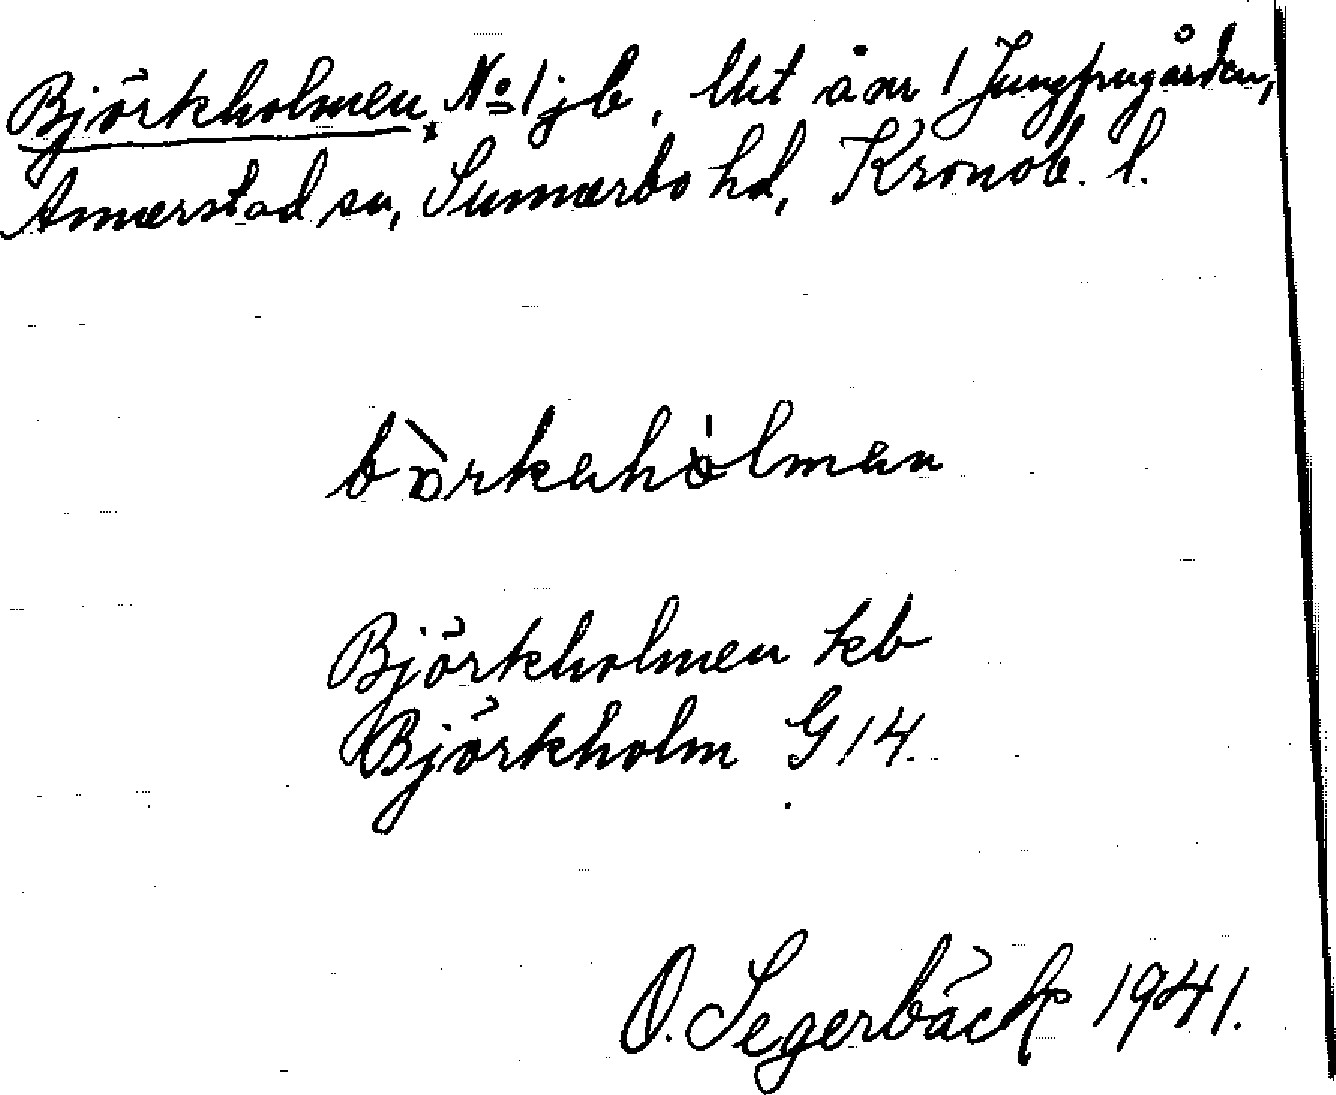 Björkholmen, No 1 jb, Utt å nr 1 Jungfrugården,
Annerstad sn, Sunnerbo hd, Kronob. l.
bòrkehólmen
Björkholmen kb
Björkholm G 14.
O. Segerbäck 1941.